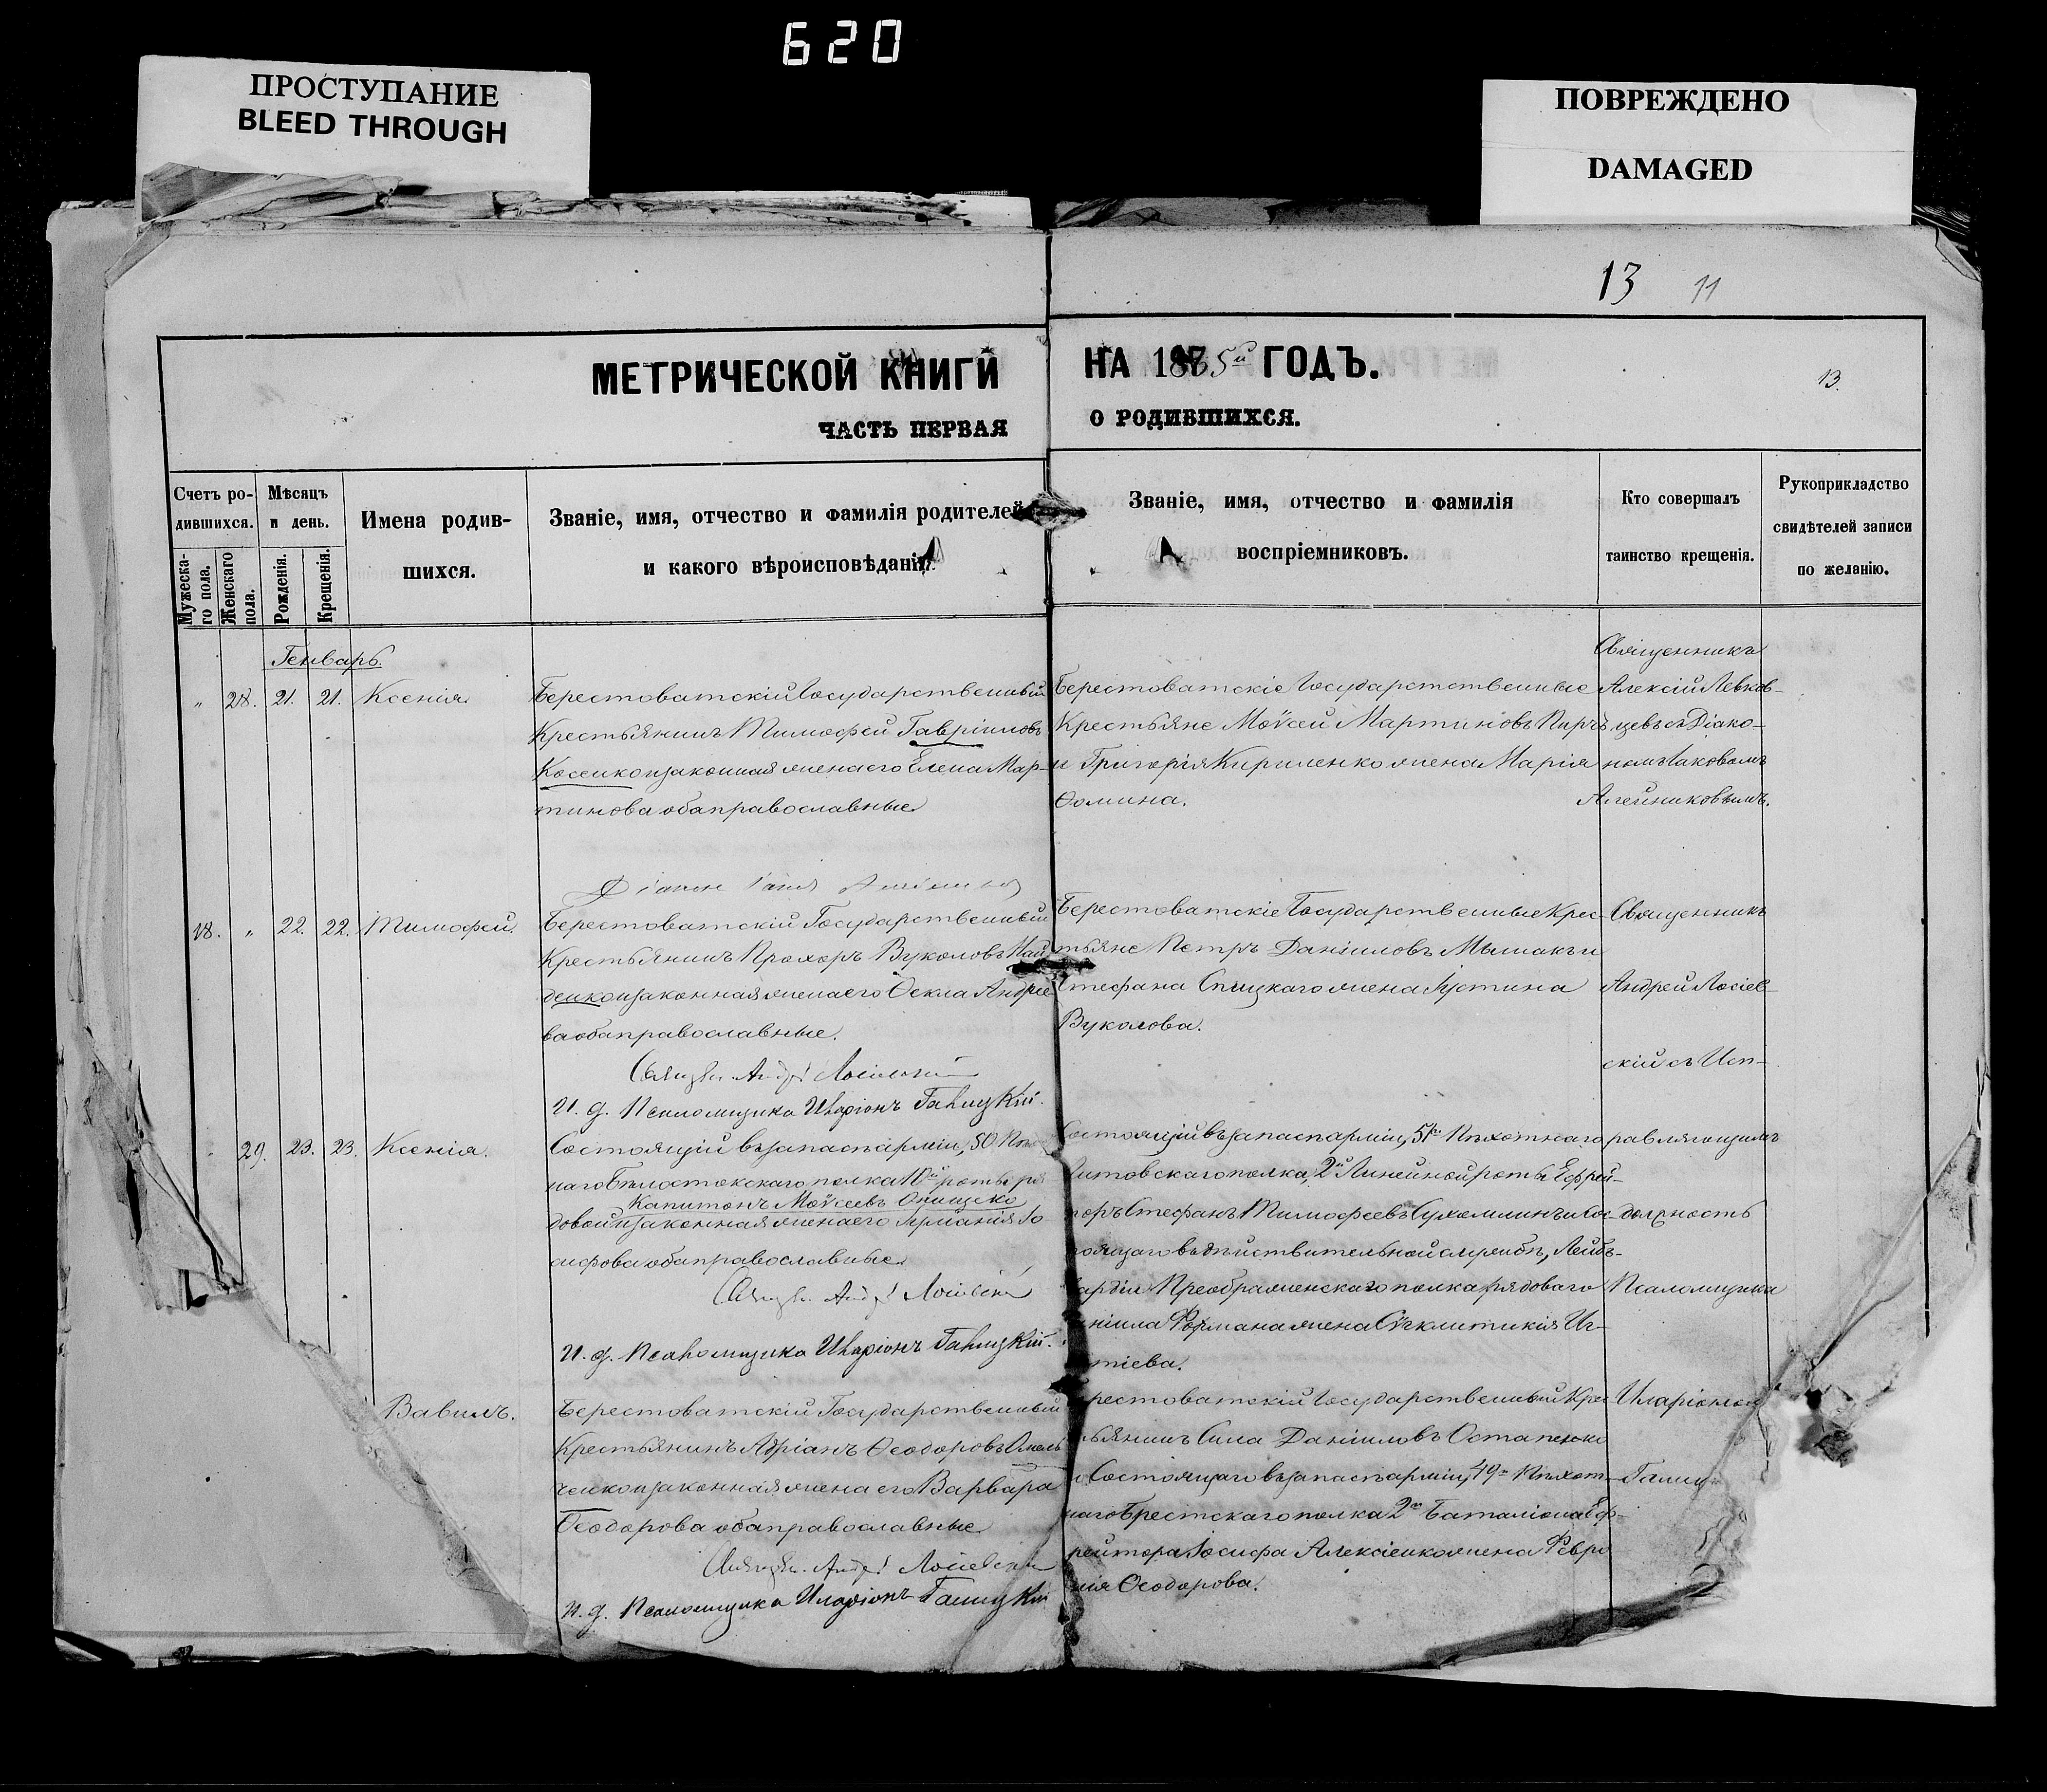 620
ПРОСТУПАНИЕ
BLEED THROUGH
ПОВРЕЖДЕНО
DAMAGED
13 11
МЕТРИЧЕСКОЙ КНИГИ НА 1885й ГОДЪ.
13.
ЧАСТЬ ПЕРВАЯ О РОДИВШИХСЯ.
Счетъ ро-
дившихся.
Мужеска-
го пола.
Женскаго
пола.
Мѣсяцъ
и день.
Рожденія.
Крещенія.
Имена родив-
шихся.
Званіе, имя, отчество и фамилія родителей
и какого вѣроисповѣданія.
Званіе, имя, отчество и фамилія
воспріемниковъ.
Кто совершалъ
таинство крещенія.
Рукоприкладство
свидѣтелей записи
по желанію.
Генварь.
" 28. 21. 21. Ксенія.
Берестоватскій Государственный
Крестьянинъ Тимофей Гавріиловъ
Косенко и законная жена его Елена Мар-
тинова оба православные
Берестоватскіе Государственные
Крестьяне Моѵсей Мартиновъ Пирчъ
и Григорія Кириленко жена Марія
Ѳомина.
Священникъ
Алексій Левков-
цевъ съ Діако-
номъ Іаковомъ
Алейниковымъ.
18. " 22. 22. Тимофей.
Берестоватскій Государственный
Крестьянинъ Прохоръ Вуколовъ Най
денко и законная жена его Ѳекла Андрее
ва оба православные.
Священ. Андрей Лосіевскій
И. д. Псаломщика Иларіонъ Галицкій.
Берестоватскіе Государственные Крес-
тьяне Петръ Даніиловъ Мышакъ и
Стефана Спицкаго жена Іустина
Вуколова.
Священникъ
Андрей Лосіев-
скій съ Исп-
29. 23. 23. Ксенія.
Состоящій въ запасѣ арміи, 50 Пѣхо
наго Бѣлостокскаго полка 10й роты ря
Капитонъ Моѵсеевъ Онищеко
довой и законная жена его Іуліанія Іо
сифова оба православные
Священ. Андрей Лосіевскій
И. д. Псаломщика Иларіонъ Галицкій.
Состоящій въ запасѣ арміи, 51го Пѣхотнаго
Литовскаго полка, 2й Линейной роты Ефрей-
торъ Стефанъ Тимофеевъ Сухомлинъ и Сос-
тоящаго въ дѣйствительной службѣ, Лейбъ-
гвардіи Преображенскаго полка рядоваго
ніила жена Сѵнклитикія Иг-
тіева.
равляющимъ
должность
Псаломщика
Вавилъ.
Берестоватскій Государственный
Крестьянинъ Адріанъ Ѳеодоровъ Омель
ченко и законная жена его Варвара
Ѳеодорова оба православные
Священ. Андрей Лосіевскій
И. д. Псаломщика Иларіонъ Галицкій
рестоватскій Государственный Крес-
тьянинъ Сила Даніиловъ Остапенко
и Состоящаго въ запасѣ арміи, 49го Пѣхот-
наго Брестскаго полка 2го Баталіона Еф-
рейтора Іосифа Алексіенко жена Февро
нія Ѳеодорова.
Иларіоном
Галиц